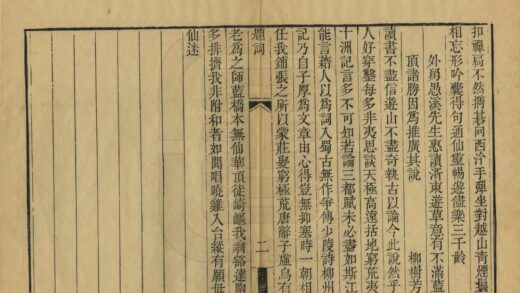 扣禪扃不然攜碁向西泠手彈坐對越山靑煙鬟
相忘形吟囊得句通仙靈暢遊儘樂三千齡
外舅愚溪先生惠讀浙東遊草意有不滿藍
頂諸勝因爲推廣其說
柳樹芳
讀書不盡信遊山不盡奇執古以論今此說然乎
人好穿鑿每多非夷思談天極高遠括地窮荒夷
十洲記言多不可知若論三都賦未必盡如斯江
能言藉人以爲詞入蜀古無作爭傳少陵詩柳州
記乃自子厚爲文章由心得豈無抑塞時一朝相
任我鋪張之所以蒙莊叟窮極荒唐辭子虛烏有
題詞
二
老爲之師藍橋本無仙華頂徒崎嶇我翁豁達胸
多排擠我非附和者如聞唱曉雞入台縁有願毋
仙迷